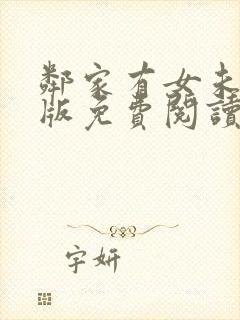 鄰家有女未
版免費閱讀
字妍